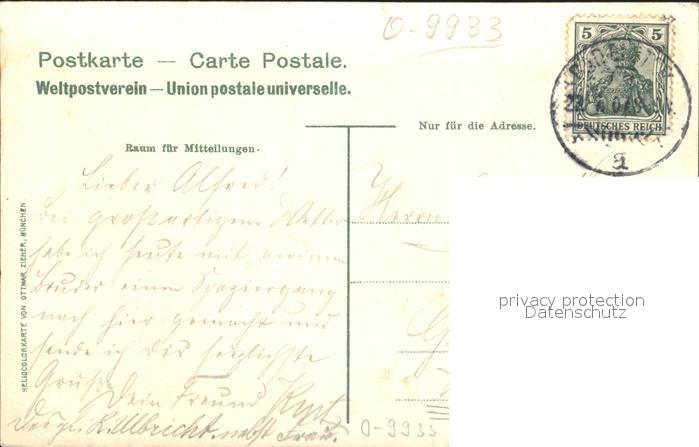 O-9933
Postkarte — Carte Postale.
Weltpostverein — Union postale universelle.
5 5
DEUTSCHES REICH
a
Nur für die Adresse.
Raum für Mitteilungen.
Lieber Alfred!
Bei großartigem Wetter
habe ich heute mit meinem
Bruder einen Spaziergang
nach hier gemacht und
sende ich dir herzlichste
Grüße Dein Freund Kurt
Desgl. K. Ulbrecht nebst Frau.
Herrn
privacy protection
Datenschutz
HELIOCOLORKARTE VON OTTMAR ZIEHER, MÜNCHEN.
O-9933